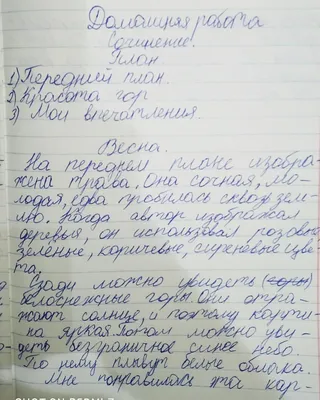 Домашняя работа
Сочинение.
План
1) Передний план.
2) Красота гор
3) Мои впечатления.
Весна.
На переднем плане изобра-
жена трава. Она сочная, мо-
лодая, едва пробилась сквозь зем-
лю. Когда автор изображал
деревья, он использовал розовые
зелёные, коричневые, сиреневые цве
та.
Сзади можно увидеть (горы)
белоснежные горы. Они отра-
жают солнце, и поэтому карти-
на яркая. Потом можно уви-
деть безграничное синее небо.
По нему плывут белые облака.
Мне понравилась эта кар-